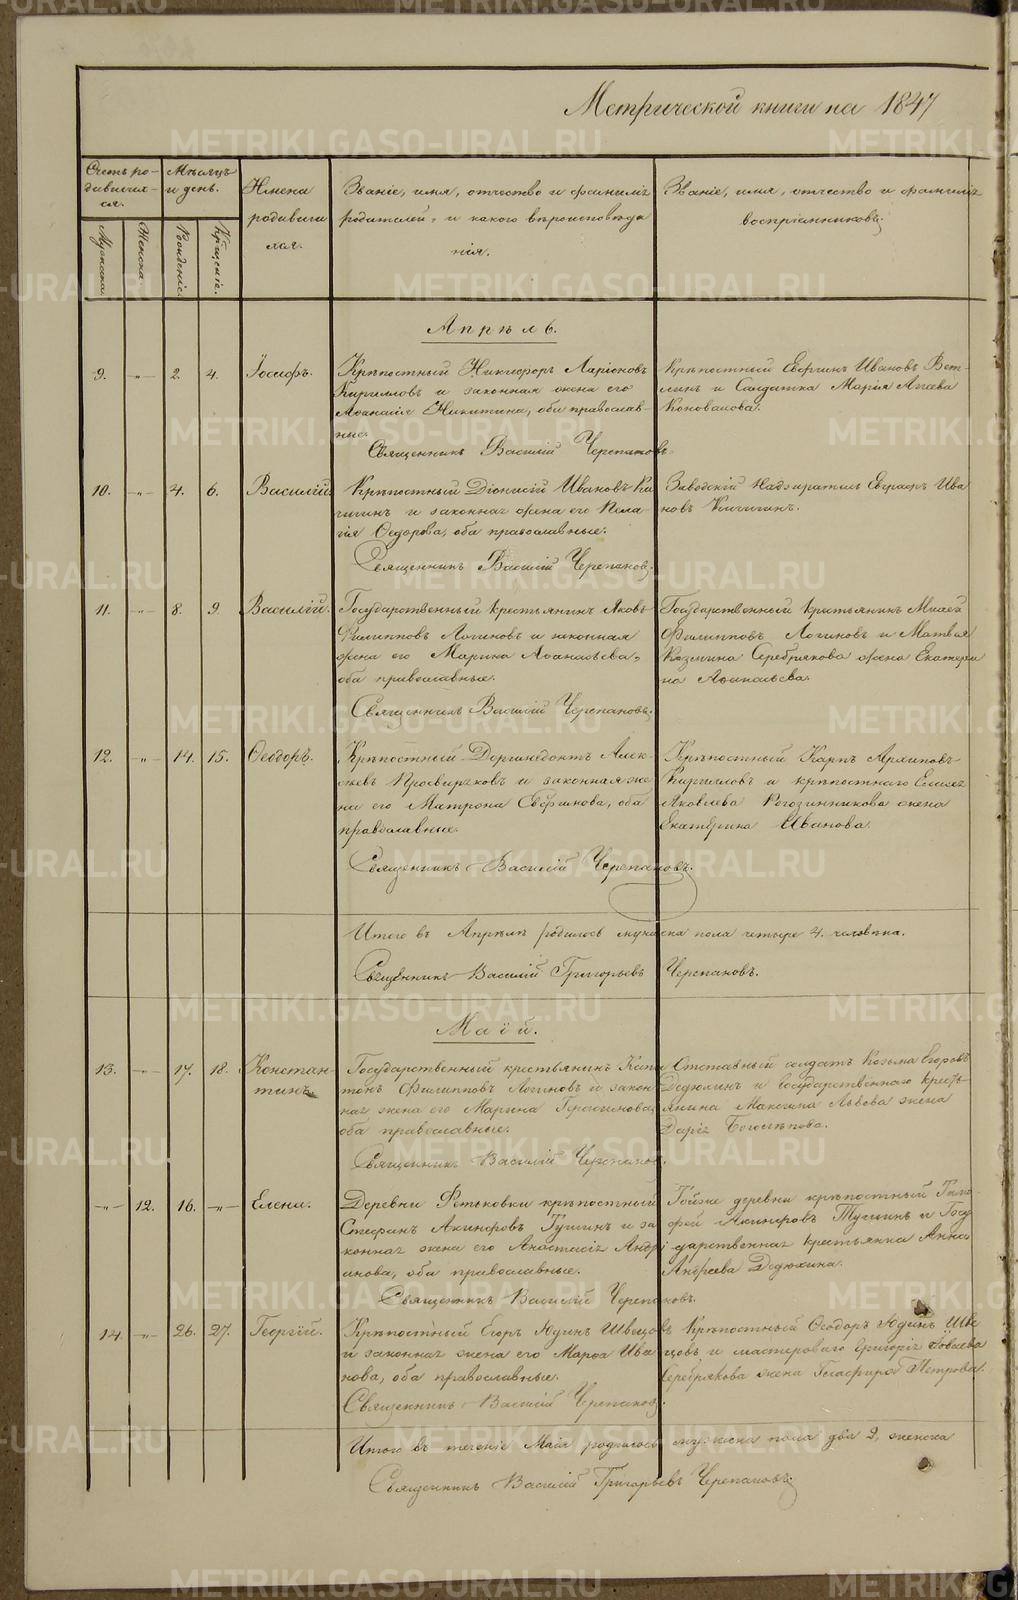 Метрической книги на 1847
Счетъ ро-
дивших-
ся.
Мѣсяцъ
и день.
Мужска.
Женска.
Рожденіе.
Крщеніе.
Имена
родивших
ся.
Званіе, имя, отчество и фамилія
родителей, и какого вѣроисповѣда
нія.
Званіе, имя, отчество и фамилія
воспріемниковъ.
Апрѣль.
9. -„- 2. 4. Іосифъ.
Крѣпостный Никифоръ Ларіоновъ
Кирилловъ и законная жена его
Аѳанасія Никитина, оба православ-
ные.
Священникъ Василій Черепановъ.
Крѣпостный Иванов
и Салдатка Марія
Коновалова.
10. -„- 4. 6. Василій.
Крѣпостный Діонисій Ивановъ Ки
чигинъ и законная жена его Пела-
гія Ѳедорова, оба православные.
Священникъ Василій Черепановъ.
Заводскій Надзиратель Евграфъ Ива
новъ Кичигинъ.
11. -„- 8. 9. Василій.
Государственный крестьянинъ Яковъ
Филипповъ Логиновъ и законная
жена его Марина Аѳанасьева,
оба православные.
Священникъ Василій Черепановъ.
Государственный крестьянинъ
Филипповъ Логиновъ и Матвѣя
Козмина Серебрякова жена Екатери
на Аѳанасьева.
12. -„- 14. 15. Ѳеодоръ.
Крѣпостный Дормидонтъ Алек-
сѣевъ Просвиряковъ и законная же
на его Матрона, оба
православные.
Священникъ Василій Черепановъ.
Крѣпостный Карпъ Архиповъ
Кирилловъ и крѣпостнаго
Яковлева Рогозинникова жена
Екатерина Иванова.
Итого въ Апрѣлѣ родилось мужеска пола четыре 4. человѣка.
Священникъ Василій Григорьевъ Черепановъ.
Маій.
13. -„- 17. 18. Констан-
тинъ.
Государственный крестьянинъ Капи
тонъ Филипповъ Логиновъ и закон-
ная жена его Марина Герасимова,
оба православные.
Священникъ Василій Черепанов.
Отставный солдатъ Козьма Егоровъ
Дедюхинъ и Государственнаго кресть-
янина Максима Львова жена
Дарія.
-„- 12. 16. -„- Елена.
Деревни крѣпостный
Стефанъ Акинфовъ Тушинъ и за
конная жена его Анастасія Андрі
анова, оба православные.
Священникъ Василій Черепановъ.
Тойже деревни крѣпостный Тимо
фей Акинфовъ Тушинъ и Госу
дарственная крестьянка Анна
Андреева Дедюхина.
14. -„- 26. 27. Георгій.
Крѣпостный Егоръ Юдинъ Швецовъ
и законная жена его Марѳа Ива
нова, оба православные.
Священникъ Василій Черепановъ.
Крѣпостный Ѳеодоръ Юдинъ Шве
цовъ и мастероваго Григорія
Серебрякова жена Глафира Петрова.
Итого въ теченіе Маія родилось мужеска пола два 2, женска
Священникъ Василій Григорьевъ Черепановъ.
METRIKI.GASO-URAL.RU